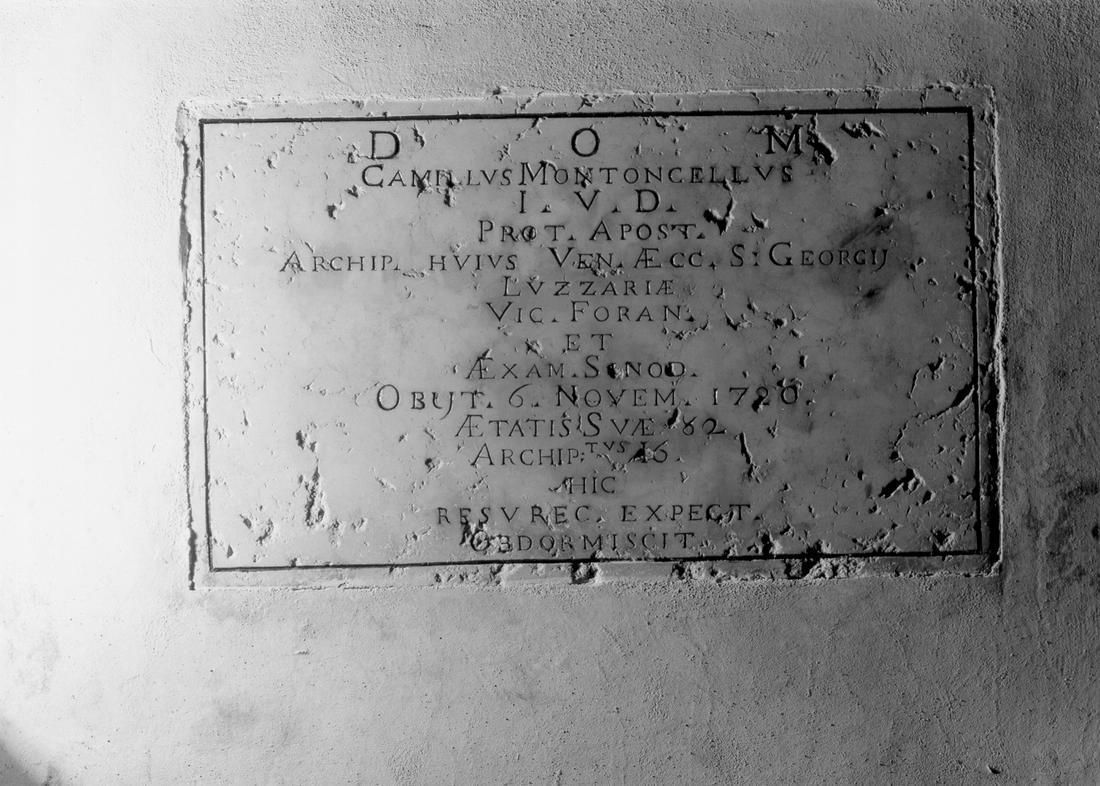 D O M
CAMILLVS MONTONCELLVS
I. V. D.
PROT. APOST.
ARCHIP. HVIVS VEN. ÆCC. S: GEORGIJ
LVZZARIÆ
VIC. FORAN.
ET
ÆXAM. SINOD.
OBIJT. 6. NOVEM. 1720.
ÆTATIS SVÆ 62
ARCHIP:TVS 16.
HIC
RESVREC. EXPECT.
OBDORMISCIT.